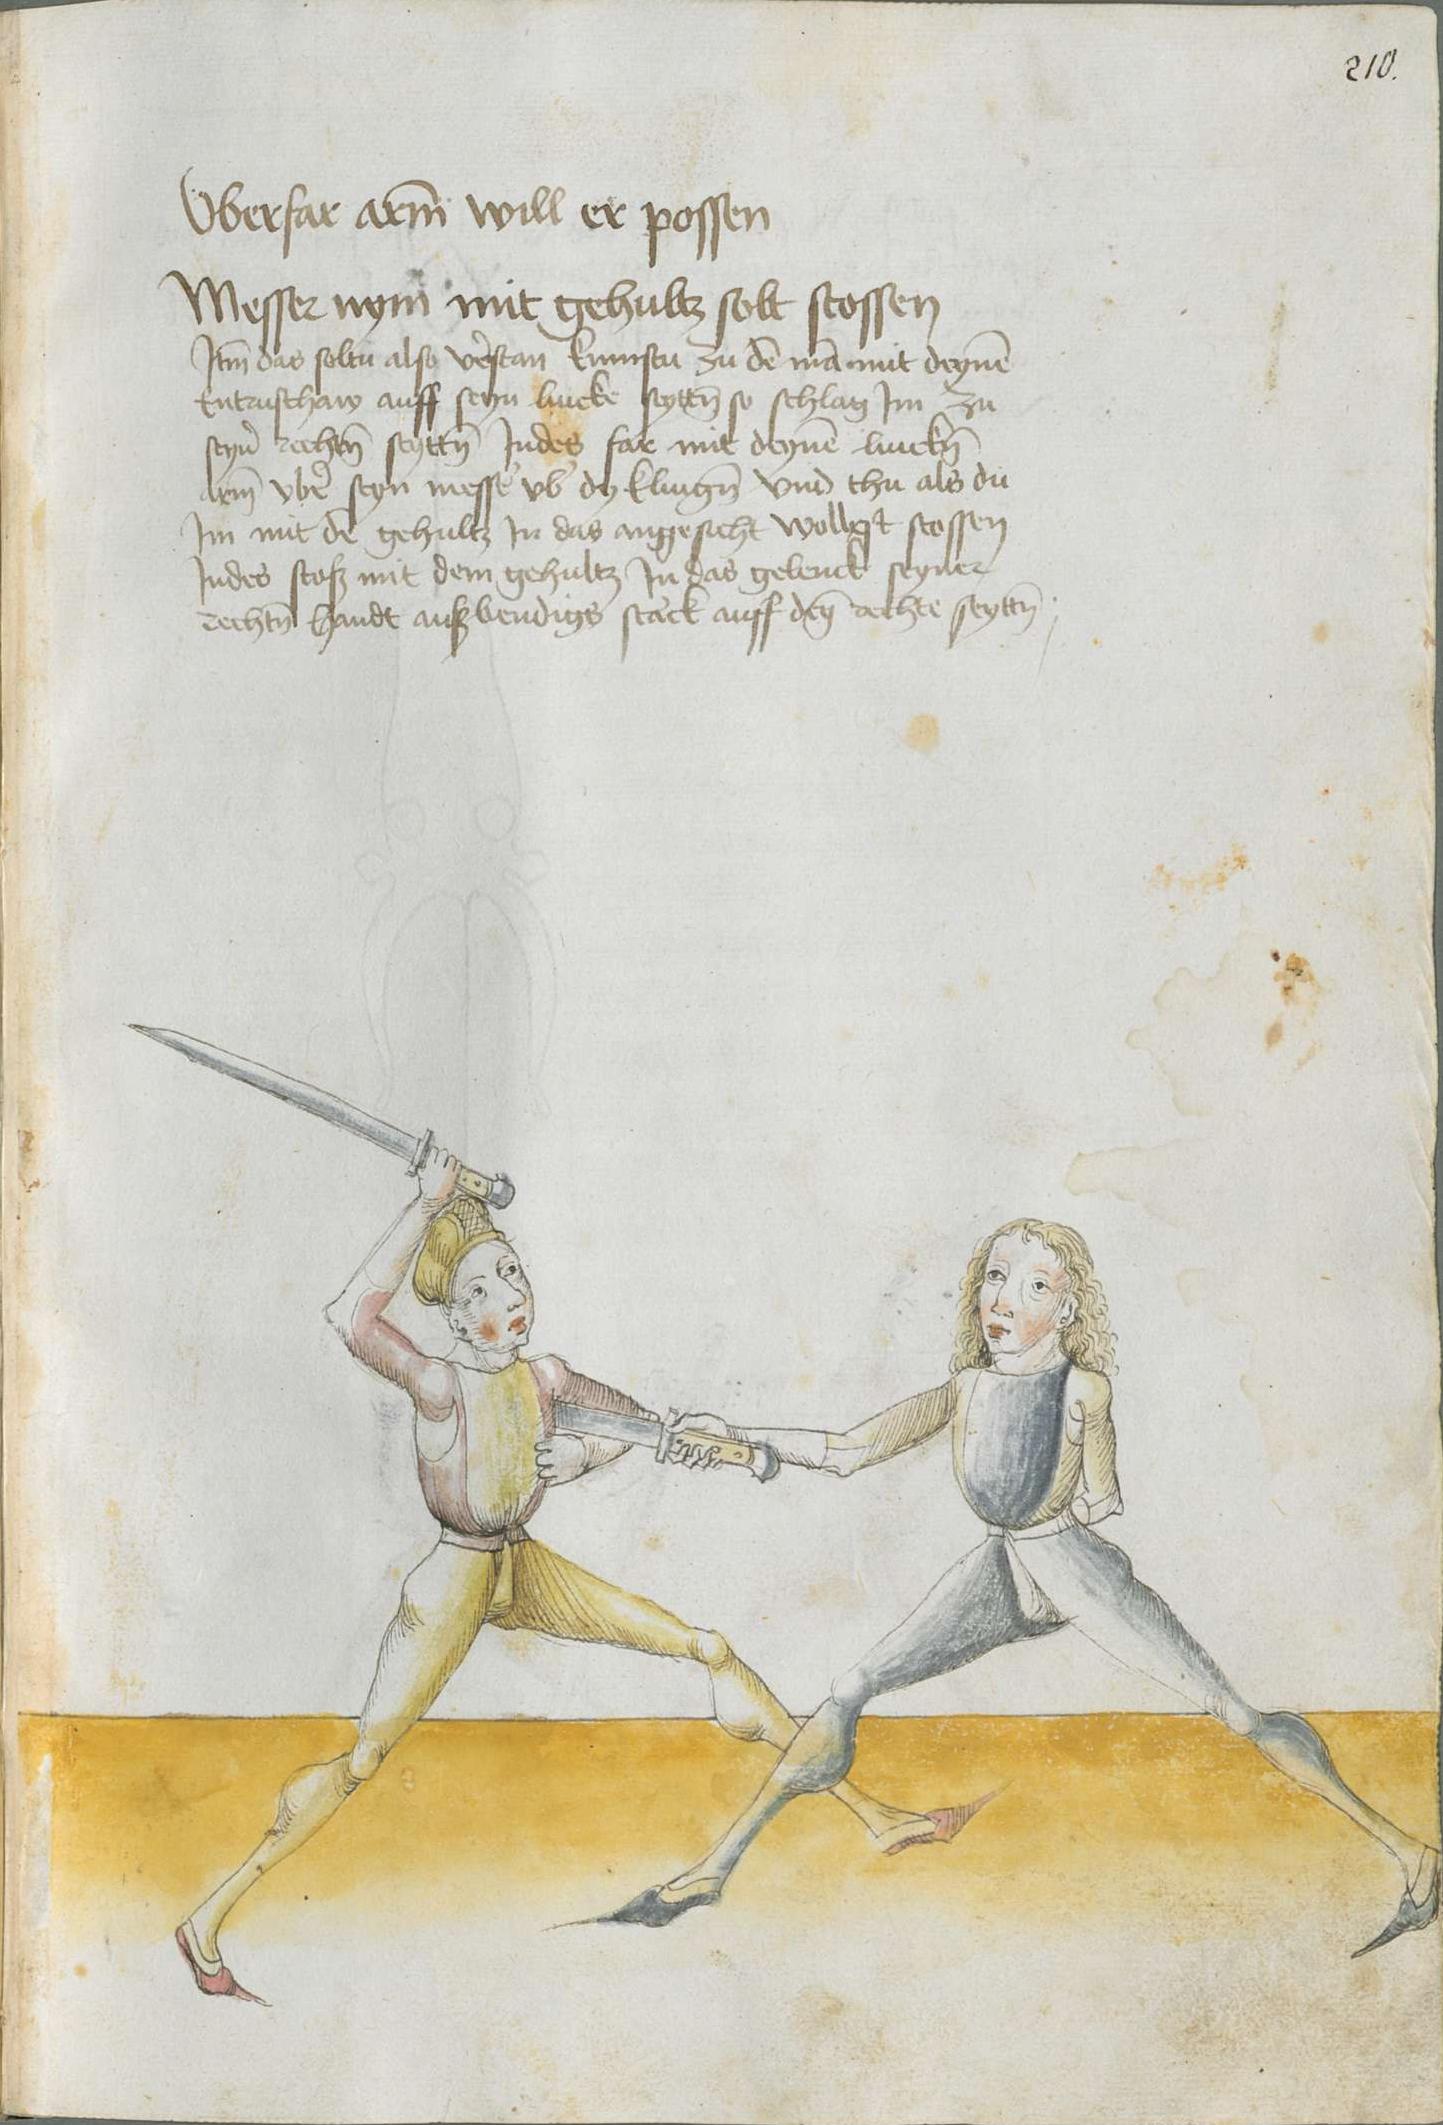 210.
Vberfar arm̄ will er possen
Messer nym̄ mit gehultz solt stossen
Itm̄ das soltu also v̾estan kumstu zu dē mā mit deynē
Entrusthaw auff seyn lincke seyttn̄ so schlag Im zu
seyn̾ rechtn̄ seyttn̄ Indes far mit deynē linckn̄
arm̄ vbe̾ seyn messe̾ vb̾ dy klingn̄ vnd thu als du
Im mit dē gehultz In das angesicht wollest stossen
Indes stosz mit dem gehultz In das gelenck seyner
rechtn̄ handt auszbendigs sta̾ck auff deȳ rechte seyttn̄